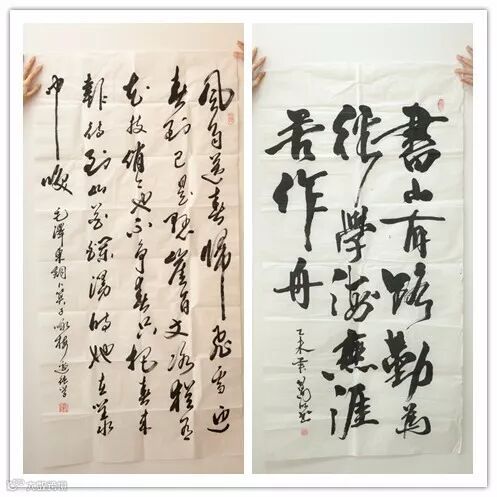 風雨送春歸飛雪迎
春到已是懸崖百丈冰猶有
花枝俏俏也不争春只把春來
報待到山花爛漫時她在叢
中笑
毛澤東詞卜算子咏梅
書山有路勤為
徑學海無涯
苦作舟
乙未年